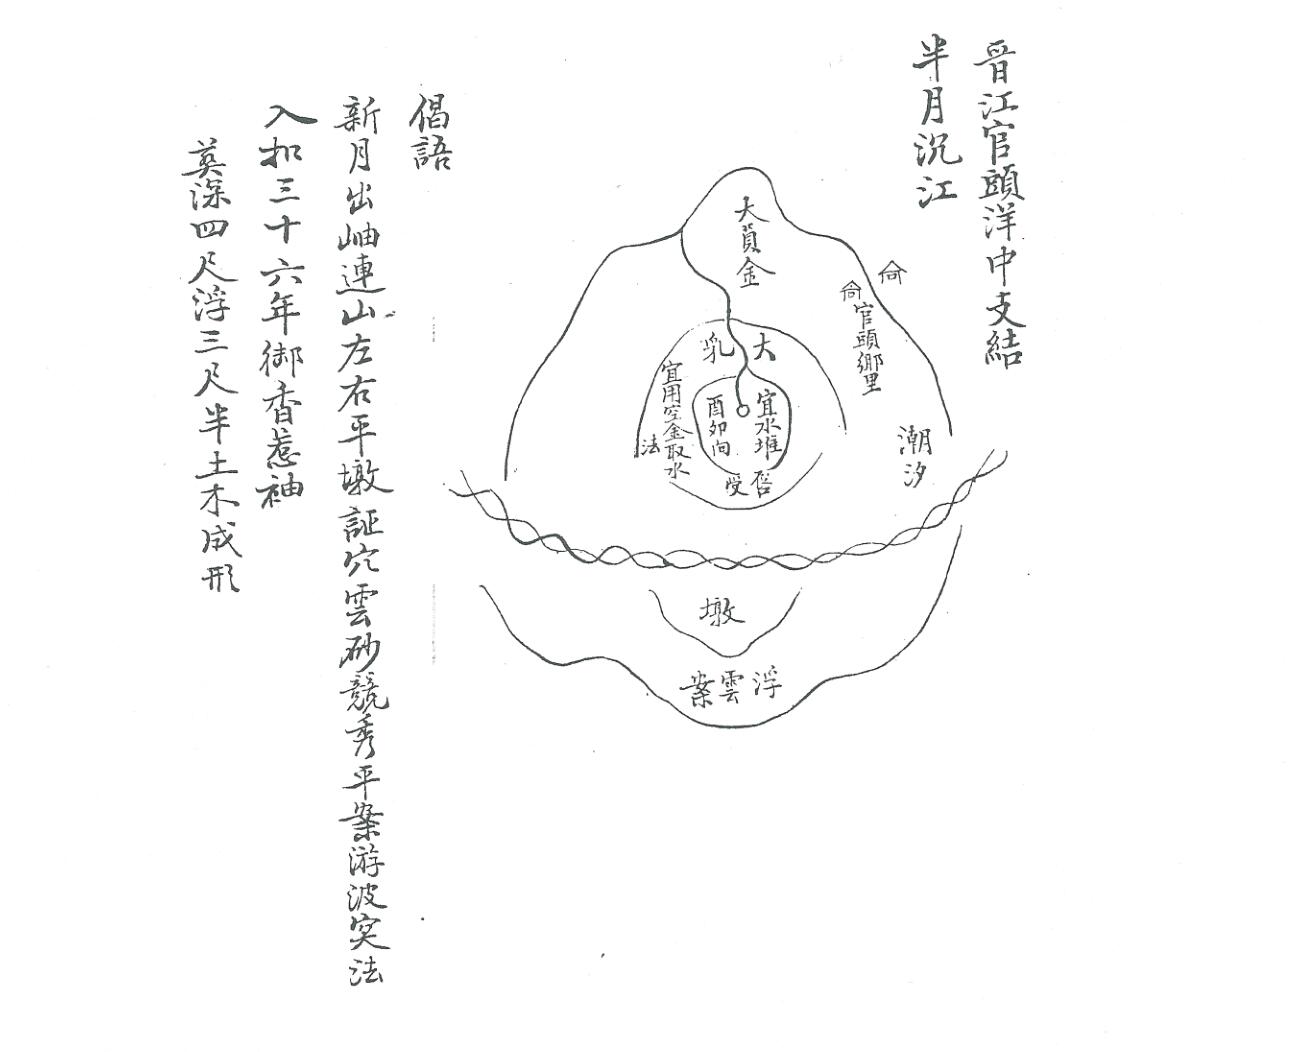 晉江官頭洋中支結
半月沉江
大員金
官頭鄉里
潮汐
大乳
宜水堆
酉卯向
宜用空金取水
法
墩
浮雲案
偈語
新月出岫連山左右平墩証穴雲砂競秀平案游波突法
入扣三十六年御香惹袖
葬深四尺浮三尺半土木成形